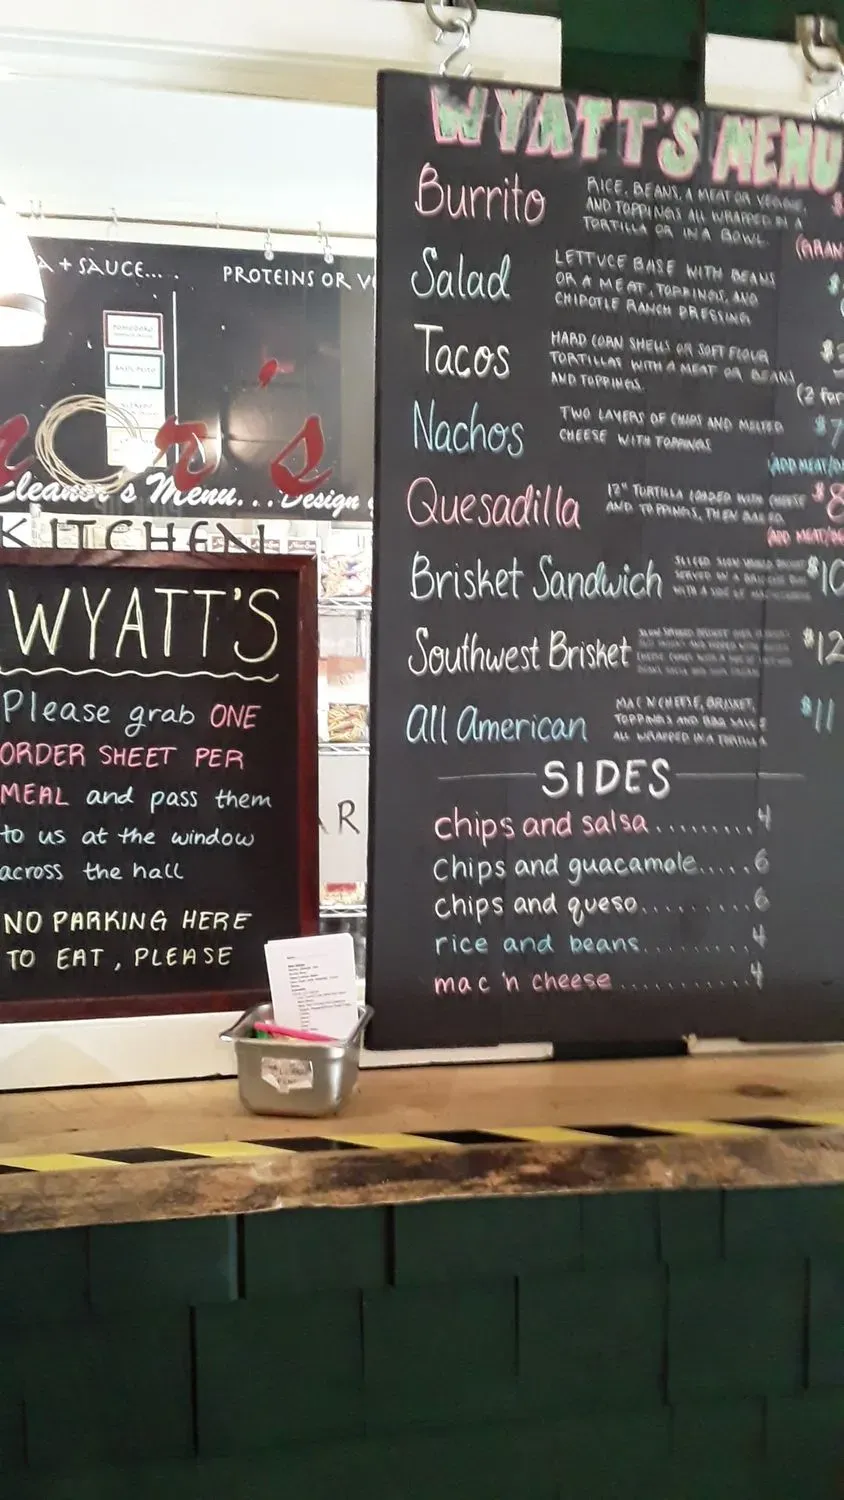 A + SAUCE...
PROTEINS OR V
or's
Eleanor's Menu...Design
KITCHEN
WYATT'S
Please grab ONE
ORDER SHEET PER
MEAL and pass them
to us at the window
across the hall
NO PARKING HERE
TO EAT, PLEASE
AR
WYATT'S MENU
Burrito
RICE, BEANS, A MEAT OR VEGGIE,
AND TOPPINGS ALL WRAPPED IN A
TORTILLA OR IN A BOWL.
(GRAN
Salad
LETTUCE BASE WITH BEANS
OR A MEAT, TOPPINGS, AND
CHIPOTLE RANCH DRESSING
Tacos
HARD CORN SHELLS OR SOFT FLOUR
TORTILLAS WITH A MEAT OR BEANS
AND TOPPINGS.
$3
(2 for
Nachos
TWO LAYERS OF CHIPS AND MELTED
CHEESE WITH TOPPINGS
$7
(ADD MEAT/
Quesadilla
12" TORTILLA LOADED WITH CHEESE
AND TOPPINGS, THEN BAKED
$8
(ADD MEAT/
Brisket Sandwich
$10
Southwest Brisket
$12
All American
MAC N CHEESE, BRISKET,
TOPPINGS AND BBQ SAUCE
ALL WRAPPED IN A TORTILLA
$11
SIDES
chips and salsa.........4
chips and guacamole.....6
chips and queso.........6
rice and beans.........4
mac 'n cheese..........4